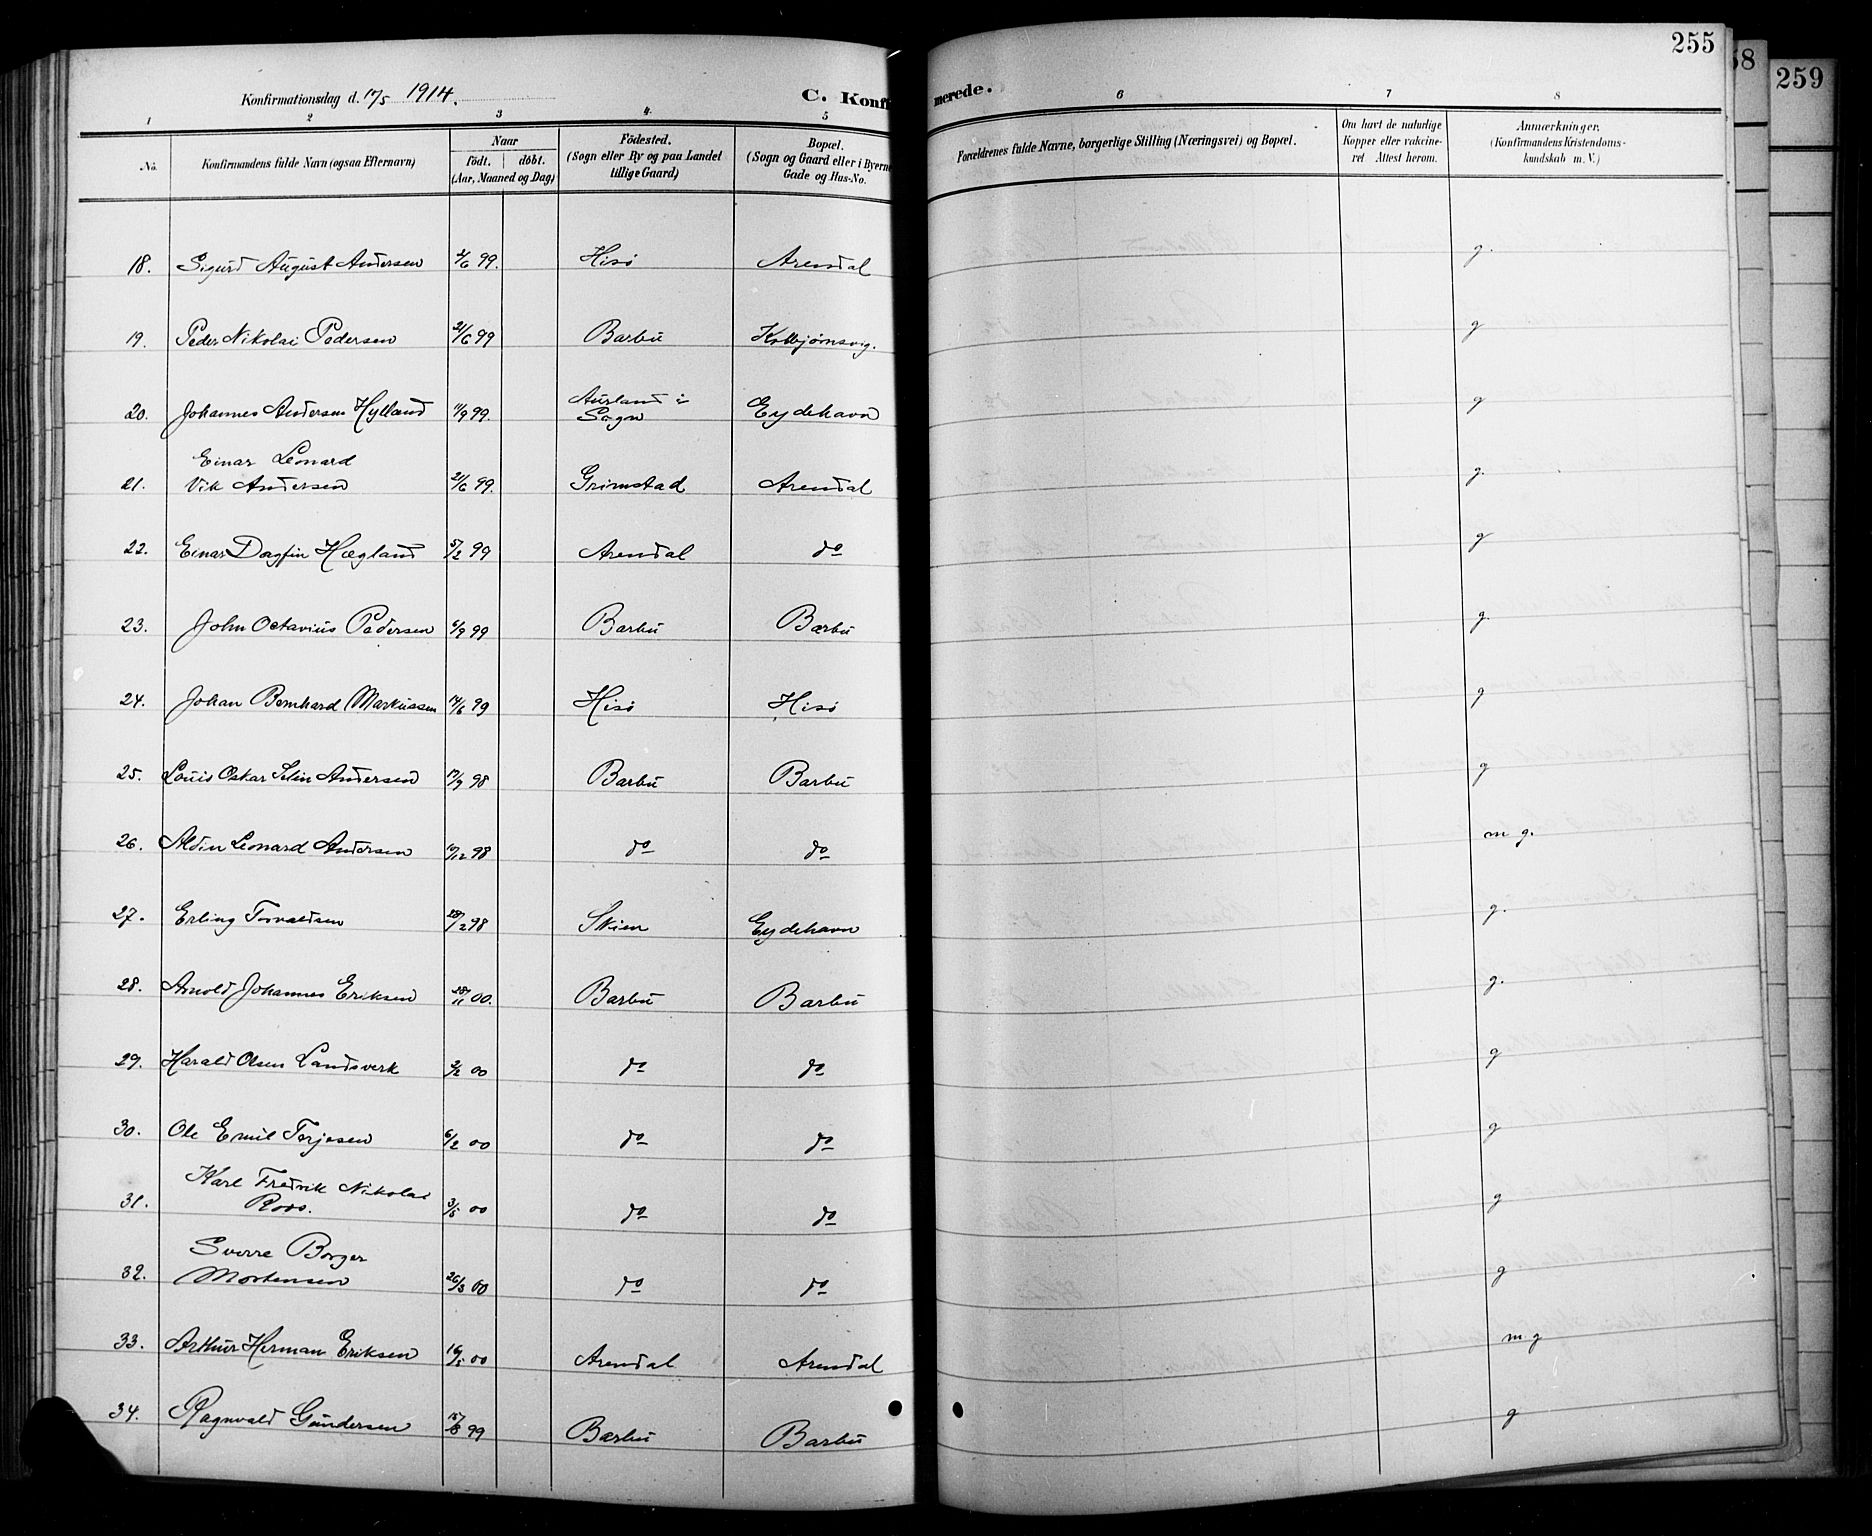 255
259
Konfirmationsdag d. 17/5 1914.
C. Konfirmerede.
1 2 3 4. 5 6 7 8
No.
Konfirmandens fulde Navn (ogsaa Efternavn)
Naar
födt. döbt.
(Aar, Maaned og Dag)
Födested.
(Sogn eller By og paa Landet
tillige Gaard)
Bopæl.
(Sogn og Gaard eller i Byerne
Gade og Hus-No.
Forældrenes fulde Navne, borgerlige Stilling (Næringsvei) og Bopæl.
Om havt de naturlige
Kopper eller vakcine-
ret Attest herom.
Anmærkninger,
(Konfirmandens Kristendoms-
kundskab m. V.)
18. Sigurd August Andersen 2/6 99. Hisö Arendal g.
19. Peder Nikolai Pedersen 21/6 99 Barbu Kolbjørnsvig. g
20. Johannes Andersen Hylland 11/9 99. Aurland i
Sogn Eydehavn g
Einar Leonard
21. Vik Andersen 21/6 99. Grimstad Arendal g.
22. Einar Dagfin Hægland 5/2 99 Arendal do g
23. John Octavius Pedersen 6/9 99 Barbu Barbu g.
24. Johan Bernhard Markussen 14/6 99 Hisö Hisö g
25. Louis Oskar Andersen 17/9 98 Barbu Barbu g
26. Aldin Leonard Andersen 10/12 98 do do m g.
27. Erling Torvaldsen 28/2 98 Skien Eydehavn g.
28. Arnold Johannes Eriksen 28/11 00. Barbu Barbu g.
29. Harald Olsen Landsverk 2/2 00 do do g
30. Ole Emil Terjesen 6/2 00 do do g
Karl Fredrik Nikolai
31. Roos. 3/5 00 do do g
Sverre Borger
32. Mortensen 26/3 00 do do g
33. Arthur Herman Eriksen 16/5 00 Arendal Arendal m. g
34. Ragnvald Gundersen 15/8 99 Barbu Barbu g